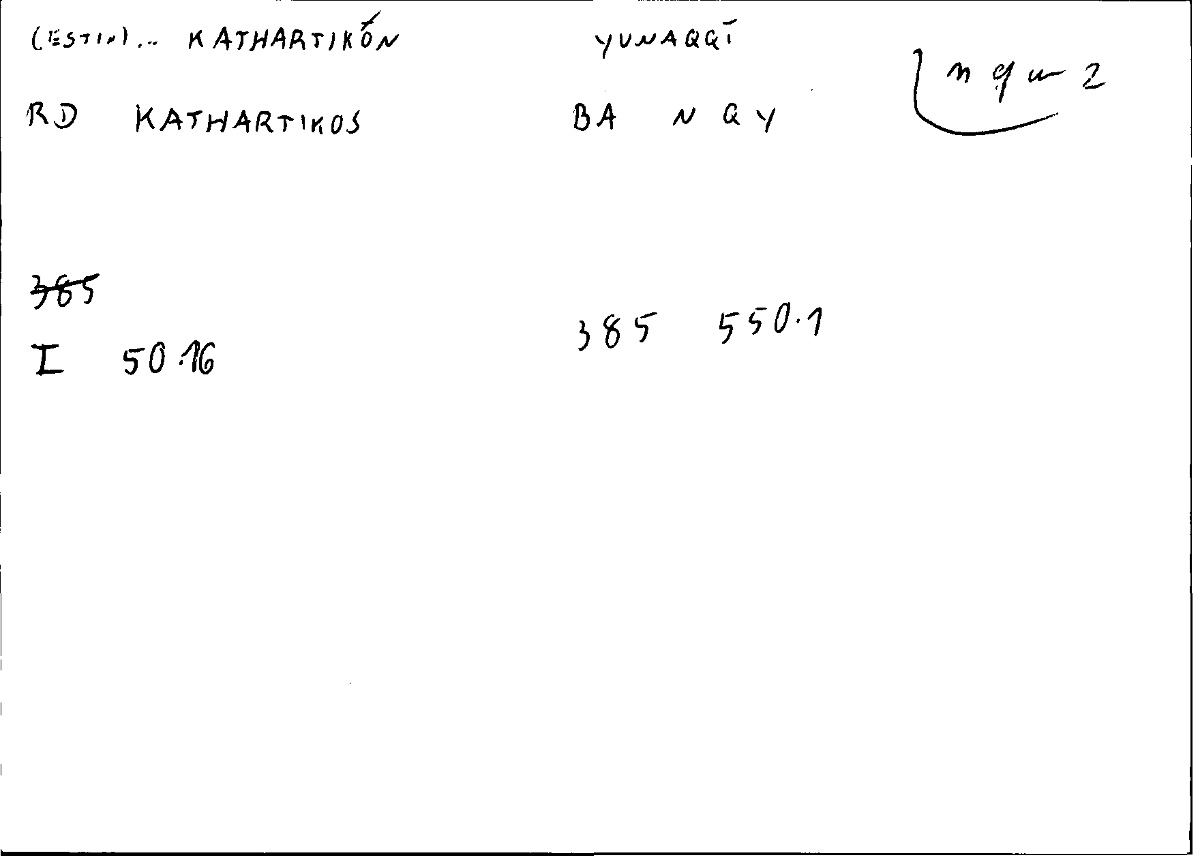 (ESTIN)... KATHARTIKÓN YUNAQQĪ
n q w 2
RD KATHARTIKOS BA N Q Y
385
I 50.16
385 550.1